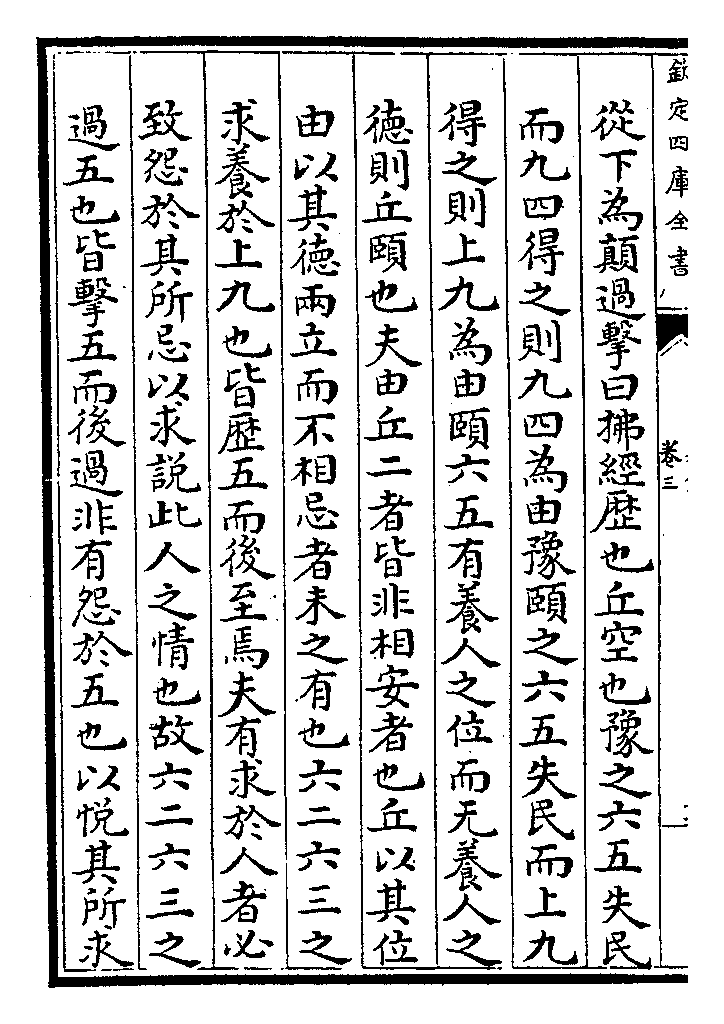 欽定四庫全書
卷三
從下為顛過擊曰拂經歷也丘空也豫之六五失民
而九四得之則九四為由豫頤之六五失民而上九
得之則上九為由頤六五有養人之位而无養人之
德則丘頤也夫由丘二者皆非相安者也丘以其位
由以其德兩立而不相忌者未之有也六二六三之
求養於上九也皆歴五而後至焉夫有求於人者必
致怨於其所忌以求說此人之情也故六二六三之
過五也皆擊五而後過非有怨於五也以悅其所求